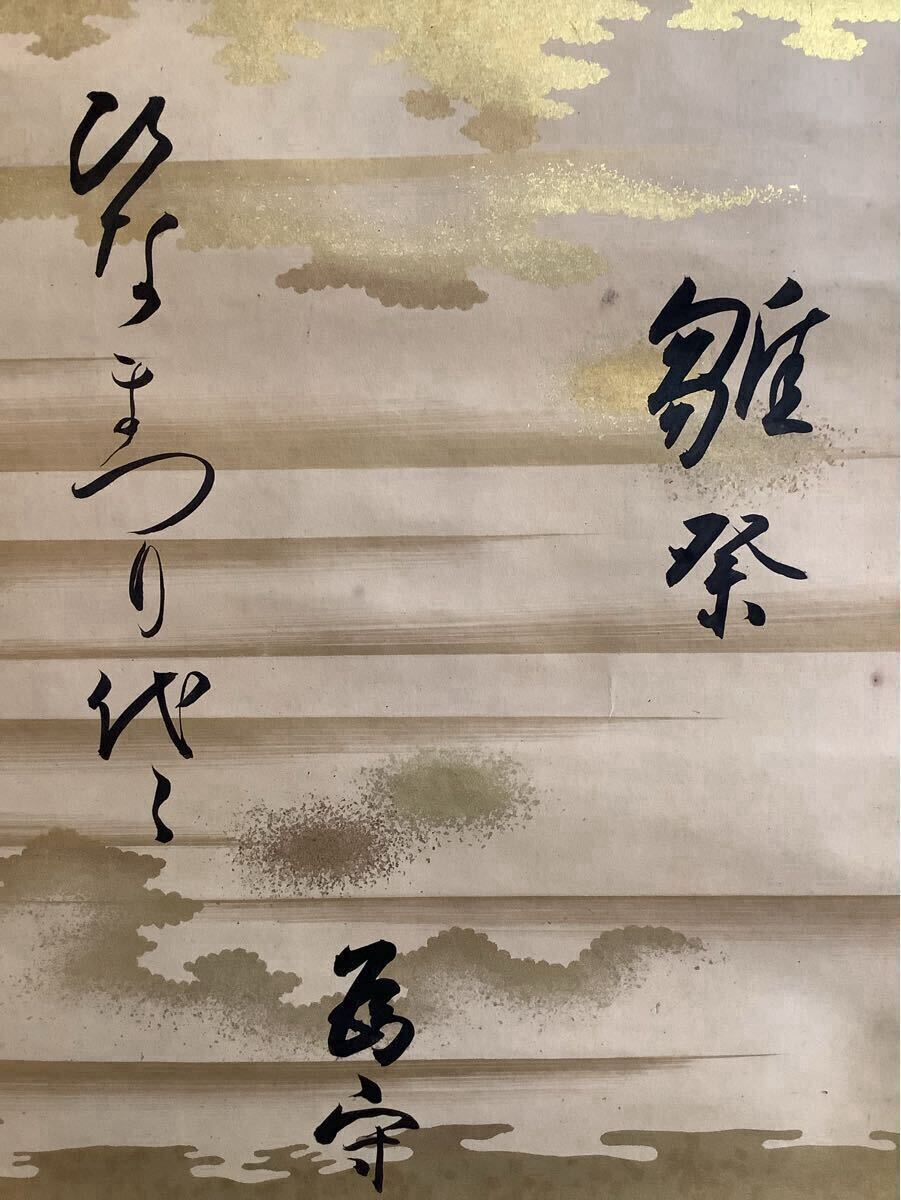 雛祭
為守
ひなまつり代々